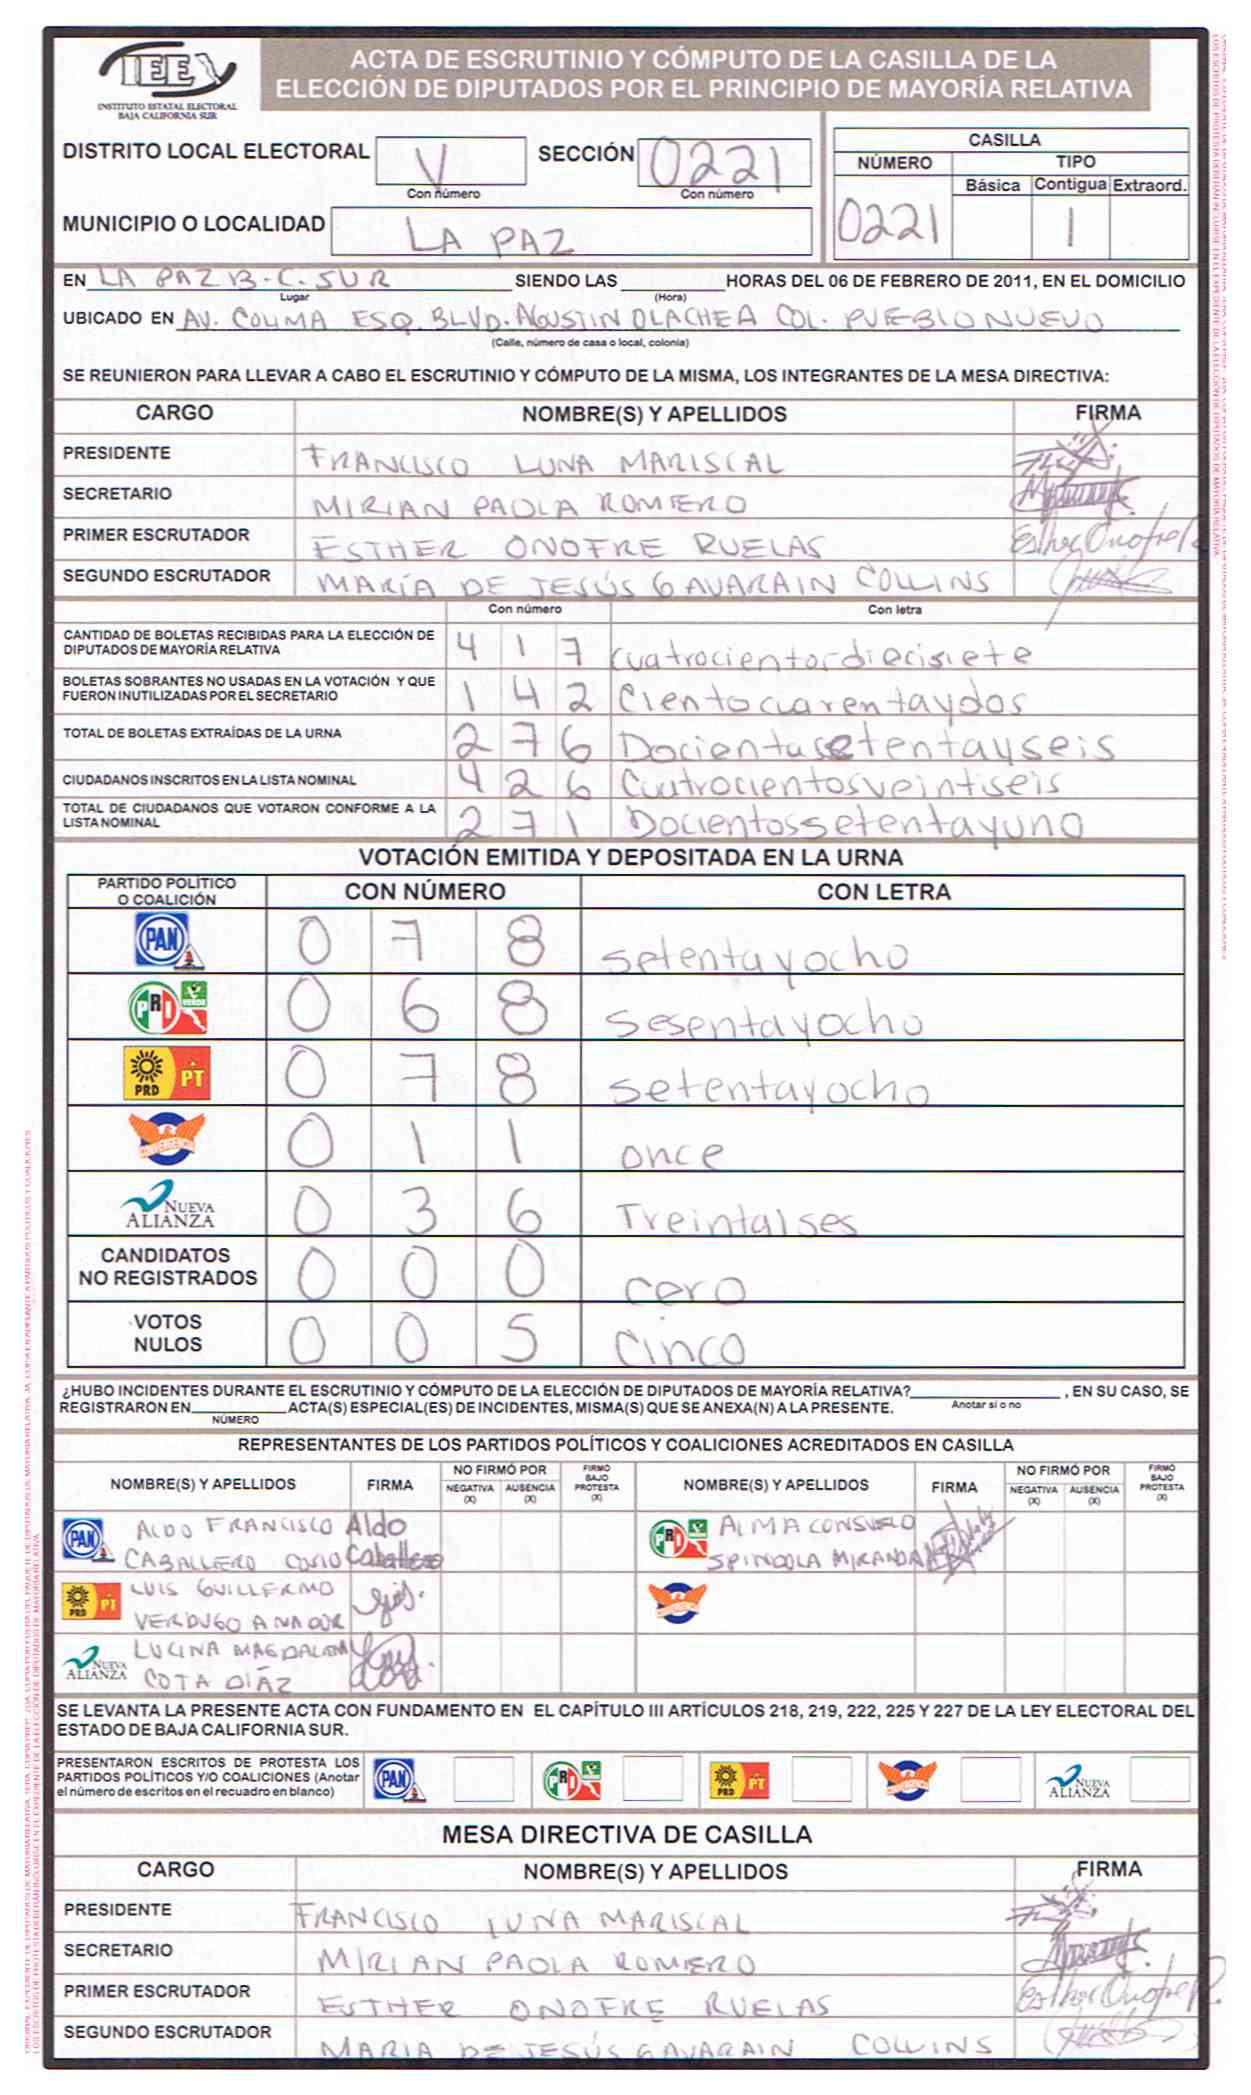 IEE
INSTITUTO ESTATAL ELECTORAL
BAJA CALIFORNIA SUR
ACTA DE ESCRUTINIO Y CÓMPUTO DE LA CASILLA DE LA
ELECCIÓN DE DIPUTADOS POR EL PRINCIPIO DE MAYORÍA RELATIVA
DISTRITO LOCAL ELECTORAL V SECCIÓN 0221
Con número Con número
MUNICIPIO O LOCALIDAD LA PAZ
CASILLA
NÚMERO TIPO
Básica Contigua Extraord.
0221 1
EN LA PAZ B.C. SUR SIENDO LAS HORAS DEL 06 DE FEBRERO DE 2011, EN EL DOMICILIO
Lugar (Hora)
UBICADO EN AV. COLIMA ESQ BLVD. AGUSTIN OLACHEA COL. PUEBLO NUEVO
(Calle, número de casa o local, colonia)
SE REUNIERON PARA LLEVAR A CABO EL ESCRUTINIO Y CÓMPUTO DE LA MISMA, LOS INTEGRANTES DE LA MESA DIRECTIVA:
CARGO NOMBRE(S) Y APELLIDOS FIRMA
PRESIDENTE FRANCISCO LUNA MARISCAL
SECRETARIO MIRIAN PAOLA ROMERO
PRIMER ESCRUTADOR ESTHER ONOFRE RUELAS Esther Onofre R.
SEGUNDO ESCRUTADOR MARÍA DE JESÚS GAVARAIN COLLINS
Con número Con letra
CANTIDAD DE BOLETAS RECIBIDAS PARA LA ELECCIÓN DE
DIPUTADOS DE MAYORÍA RELATIVA 4 1 7 cuatrocientosdiecisiete
BOLETAS SOBRANTES NO USADAS EN LA VOTACIÓN Y QUE
FUERON INUTILIZADAS POR EL SECRETARIO 1 4 2 Cientocuarentaydos
TOTAL DE BOLETAS EXTRAÍDAS DE LA URNA 2 7 6 Docientasetentayseis
CIUDADANOS INSCRITOS EN LA LISTA NOMINAL 4 2 6 Cuatrocientosveintiseis
TOTAL DE CIUDADANOS QUE VOTARON CONFORME A LA
LISTA NOMINAL 2 7 1 Docientossetentayuno
VOTACIÓN EMITIDA Y DEPOSITADA EN LA URNA
PARTIDO POLÍTICO
O COALICIÓN CON NÚMERO CON LETRA
PAN 0 7 8 setentayocho
PRI VERDE 0 6 8 sesentayocho
PRD PT 0 7 8 setentayocho
CONVERGENCIA 0 1 1 once
NUEVA ALIANZA 0 3 6 Treintaises
CANDIDATOS
NO REGISTRADOS 0 0 0 cero
VOTOS
NULOS 0 0 5 cinco
¿HUBO INCIDENTES DURANTE EL ESCRUTINIO Y CÓMPUTO DE LA ELECCIÓN DE DIPUTADOS DE MAYORÍA RELATIVA? , EN SU CASO, SE
Anotar si o no
REGISTRARON EN ACTA(S) ESPECIAL(ES) DE INCIDENTES, MISMA(S) QUE SE ANEXA(N) A LA PRESENTE.
NÚMERO
REPRESENTANTES DE LOS PARTIDOS POLÍTICOS Y COALICIONES ACREDITADOS EN CASILLA
NOMBRE(S) Y APELLIDOS FIRMA NO FIRMÓ POR NEGATIVA (X) AUSENCIA (X) FIRMÓ BAJO PROTESTA (X) NOMBRE(S) Y APELLIDOS FIRMA NO FIRMÓ POR NEGATIVA (X) AUSENCIA (X) FIRMÓ BAJO PROTESTA (X)
PAN ALDO FRANCISCO Aldo PRI ALMA CONSUELO
CABALLERO Caballero SPINDOLA MIRANDA
PRD PT LUIS GUILLERMO
VERDUGO
NUEVA ALIANZA LUCINA MAGDALENA
COTA DÍAZ
SE LEVANTA LA PRESENTE ACTA CON FUNDAMENTO EN EL CAPÍTULO III ARTÍCULOS 218, 219, 222, 225 Y 227 DE LA LEY ELECTORAL DEL
ESTADO DE BAJA CALIFORNIA SUR.
PRESENTARON ESCRITOS DE PROTESTA LOS
PARTIDOS POLÍTICOS Y/O COALICIONES (Anotar
el número de escritos en el recuadro en blanco) PAN PRI PRD PT NUEVA ALIANZA
MESA DIRECTIVA DE CASILLA
CARGO NOMBRE(S) Y APELLIDOS FIRMA
PRESIDENTE FRANCISCO LUNA MARISCAL
SECRETARIO MIRIAN PAOLA ROMERO
PRIMER ESCRUTADOR ESTHER ONOFRE RUELAS Esther Onofre R.
SEGUNDO ESCRUTADOR MARIA DE JESÚS GAVARAIN COLLINS